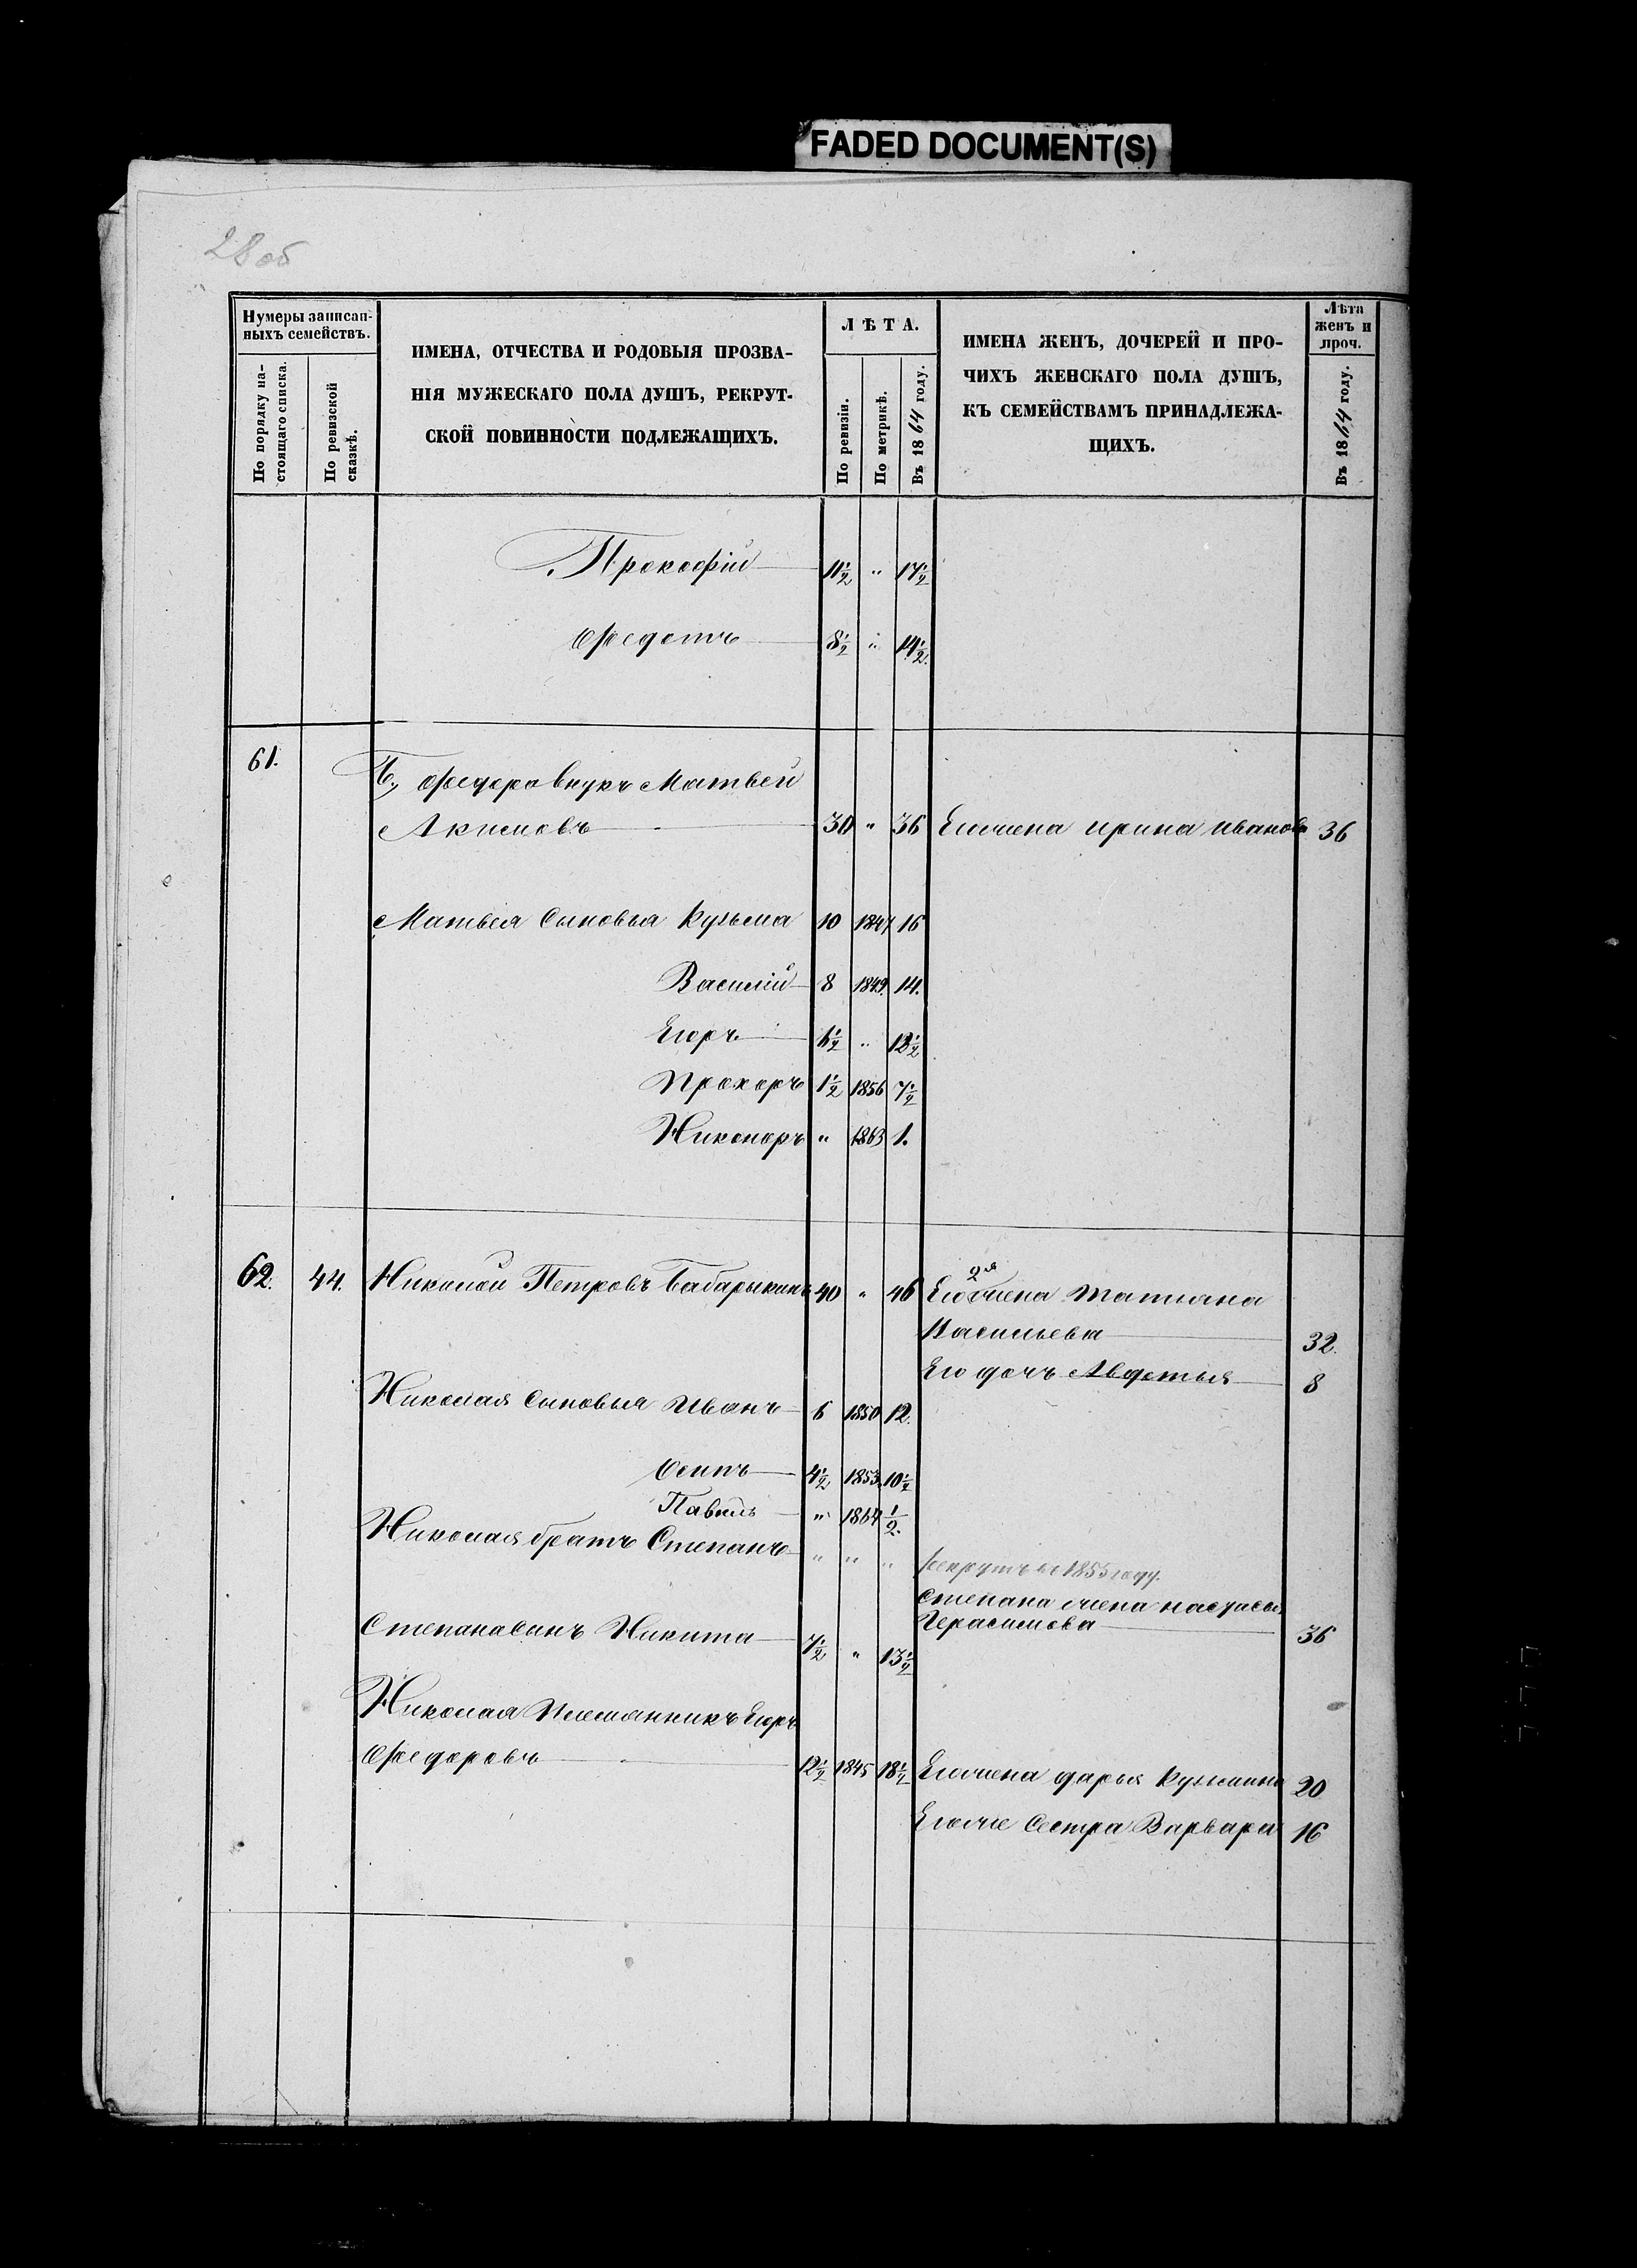 FADED DOCUMENT(S)
28 об
Нумеры записан-
ныхъ семействъ.
По порядку на-
стоящаго списка.
По ревизской
сказкѣ.
ИМЕНА, ОТЧЕСТВА И РОДОВЫЯ ПРОЗВА-
НІЯ МУЖЕСКАГО ПОЛА ДУШЪ, РЕКРУТ-
СКОЙ ПОВИННОСТИ ПОДЛЕЖАЩИХЪ.
ЛѢТА.
По ревизіи.
По метрикѣ.
Въ 1864 году.
ИМЕНА ЖЕНЪ, ДОЧЕРЕЙ И ПРО-
ЧИХЪ ЖЕНСКАГО ПОЛА ДУШЪ,
КЪ СЕМЕЙСТВАМЪ ПРИНАДЛЕЖА-
ЩИХЪ.
Лѣта
женъ и
проч.
Въ 1864 году.
Прокофій 11½ " 17½
Федотъ 8½ " 14½.
61. Федора внукъ Матвей
Акимовъ 30 " 36 Егожена Ирина Иванова 36
Матвея Сыновья Кузьма 10 1847 16
Василій 8 1849. 14.
Егоръ 6½ " 12½
Прохоръ 1½ 1856 7½
Никоноръ " 1863 1.
62. 44. Николай Петровъ Бабарыкинъ 40 " 46 Его 2я жена Татиана
Васильева 32.
Его дочь Авдотья 8
Николая Сыновья Иванъ 6 1850 12.
Осипъ 4½ 1853 10½
Павелъ " 1864 ½.
Николая братъ Степанъ " " " рекрутъ в 1855 году.
Степана жена Настасья
Герасимова 36
Степана сынъ Никита 7½ " 13½
Николая Племянникъ Егоръ
Федоровъ 12½ 1845 18½ Егожена Дарья Кузмина 20
Егоже Сестра Варвара 16